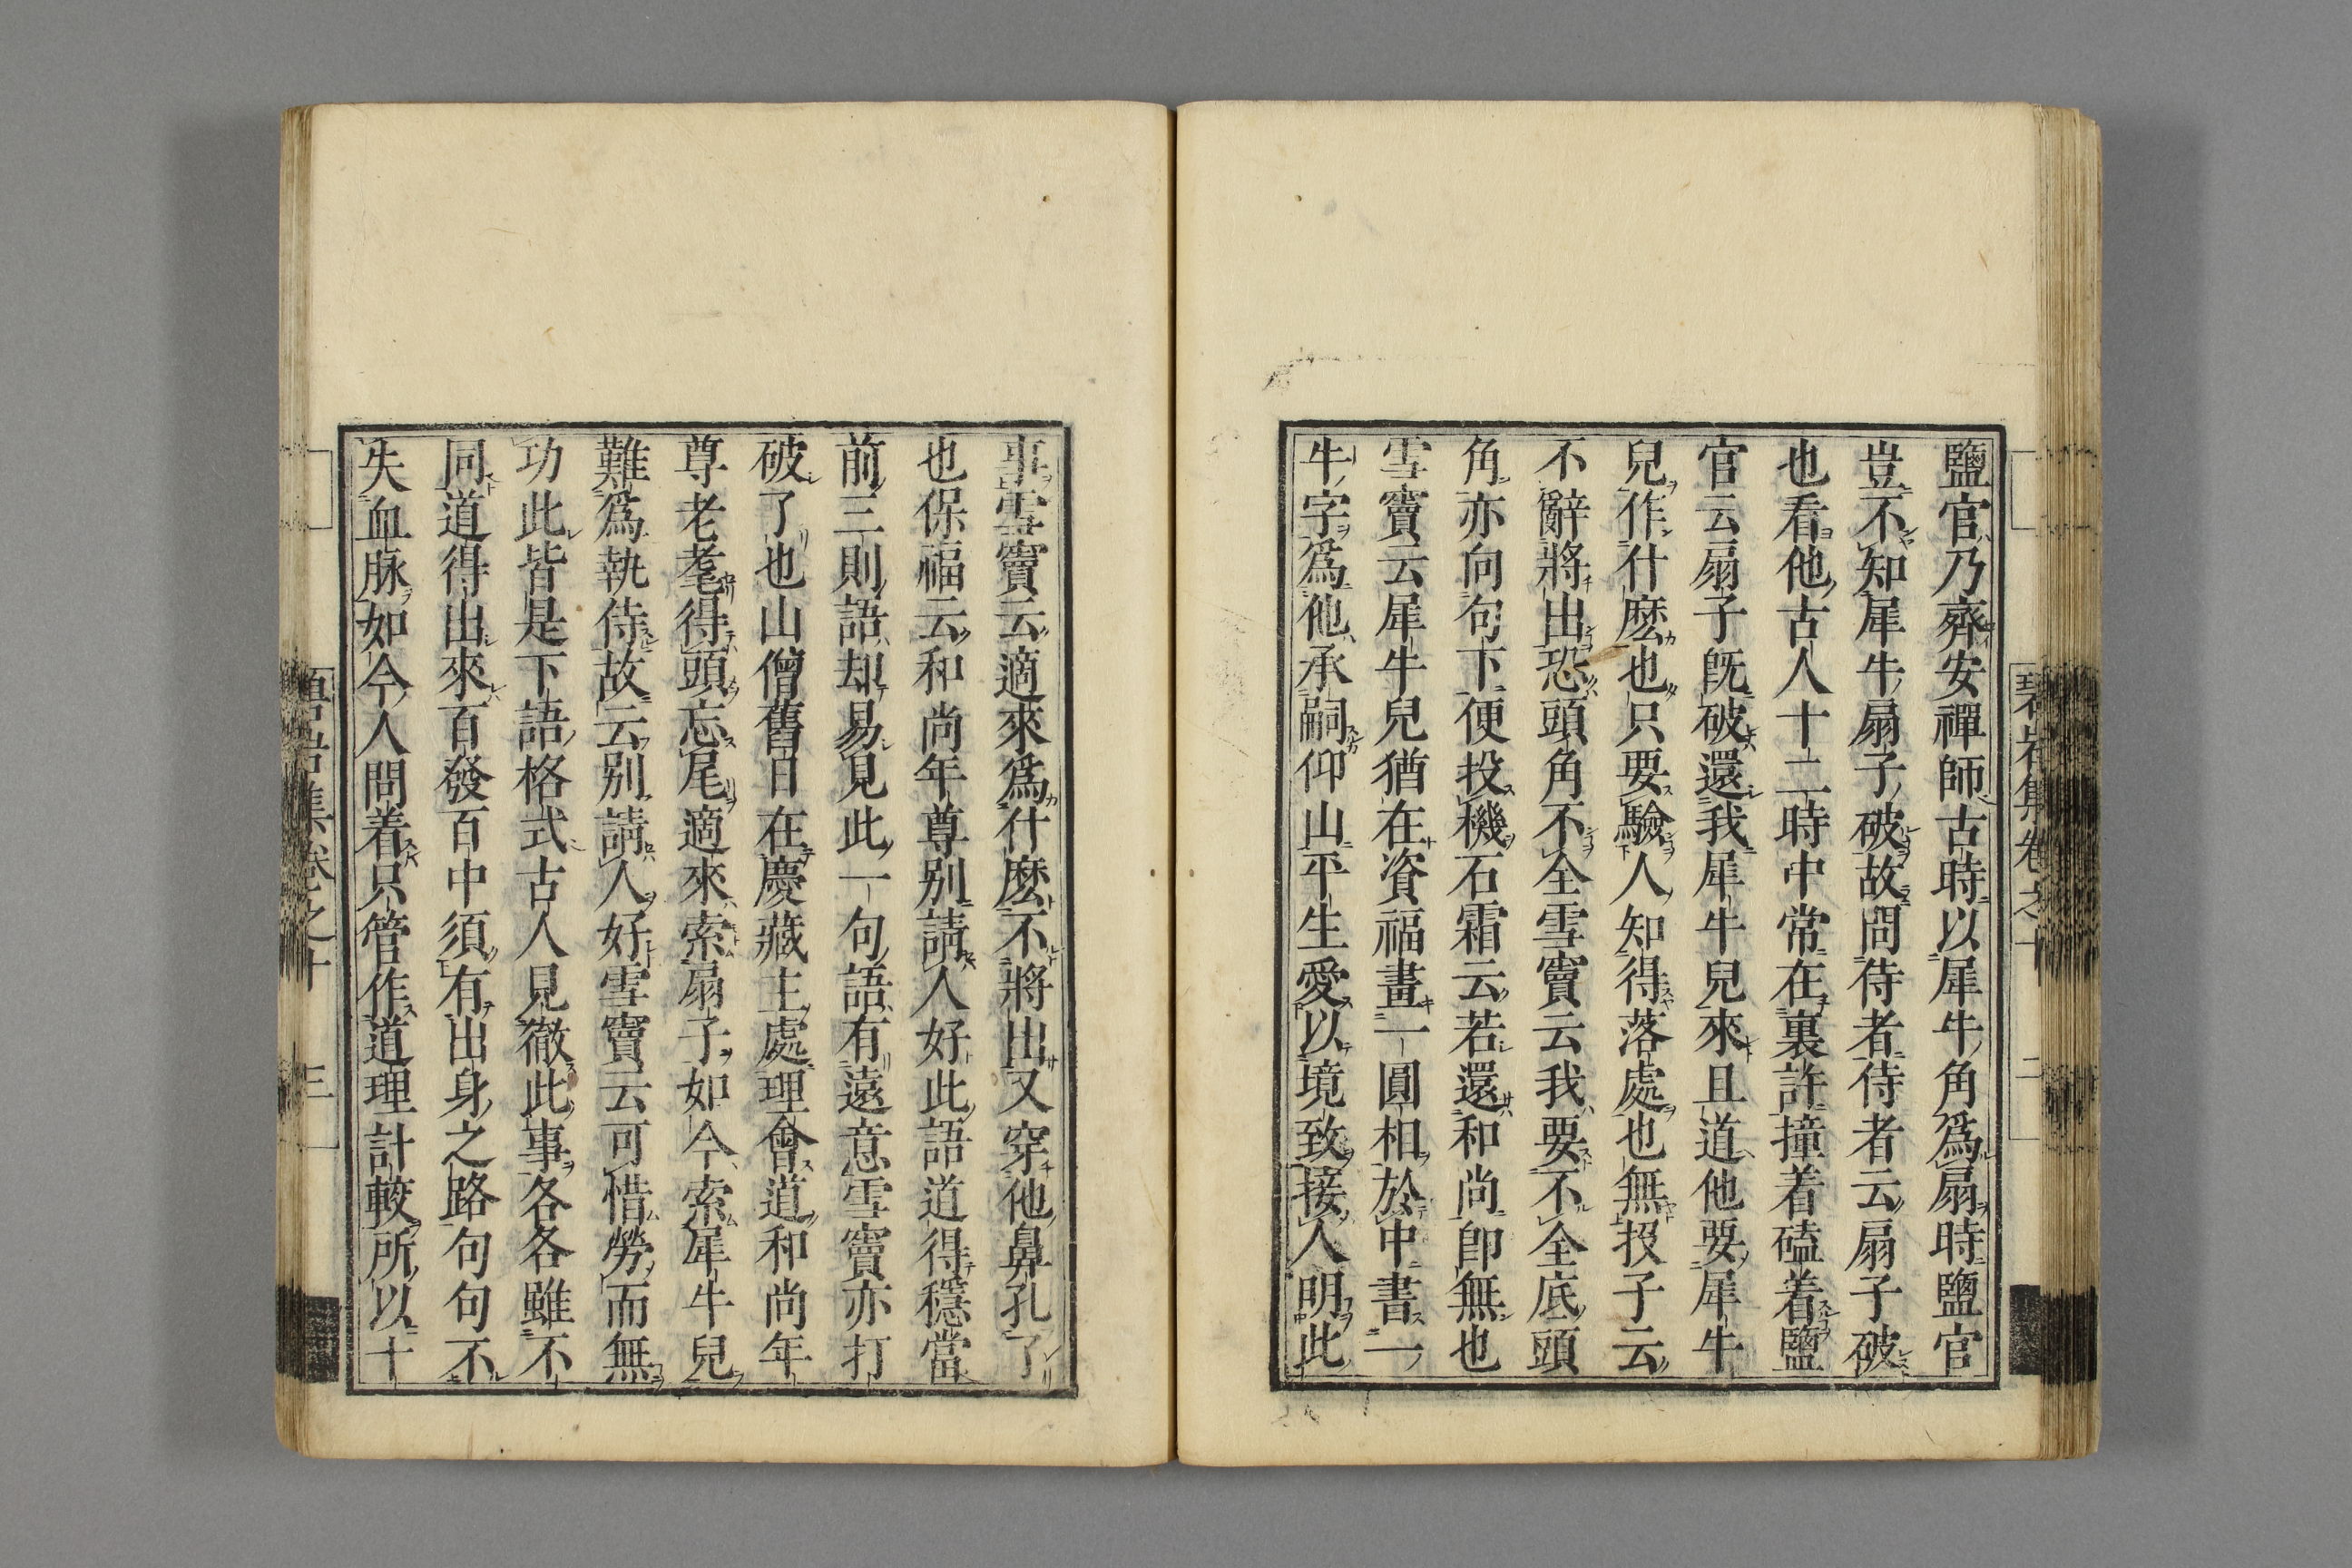 鹽官乃齊安禪師古時以犀牛角爲扇時鹽官
豈不知犀牛扇子破故問侍者侍者云扇子破
也看他古人十二時中常在裏許撞着磕着鹽
官云扇子旣破還我犀牛兒來且道他要犀牛
兒作什麽也只要驗人知得落處也無投子云
不辭將出恐頭角不全雪竇云我要不全底頭
角亦向句下便投機石霜云若還和尚卽無也
雪竇云犀牛兒猶在資福畫一圓相於中書一
牛字爲他承嗣仰山平生愛以境致接人明此
事雪竇云適來爲什麽不將出又穿他鼻孔了
也保福云和尚年尊別請人好此語道得穩當
前三則語却易見此一句語有遠意雪竇亦打
破了也山僧舊日在慶藏主處理會道和尚年
尊老耄得頭忘尾適來索扇子如今索犀牛兒
難爲執侍故云別請人好雪竇云可惜勞而無
功此皆是下語格式古人見徹此事各各雖不
同道得出來百發百中須有出身之路句句不
失血脉如今人問着只管作道理計較所以十
碧岩集卷之十 三